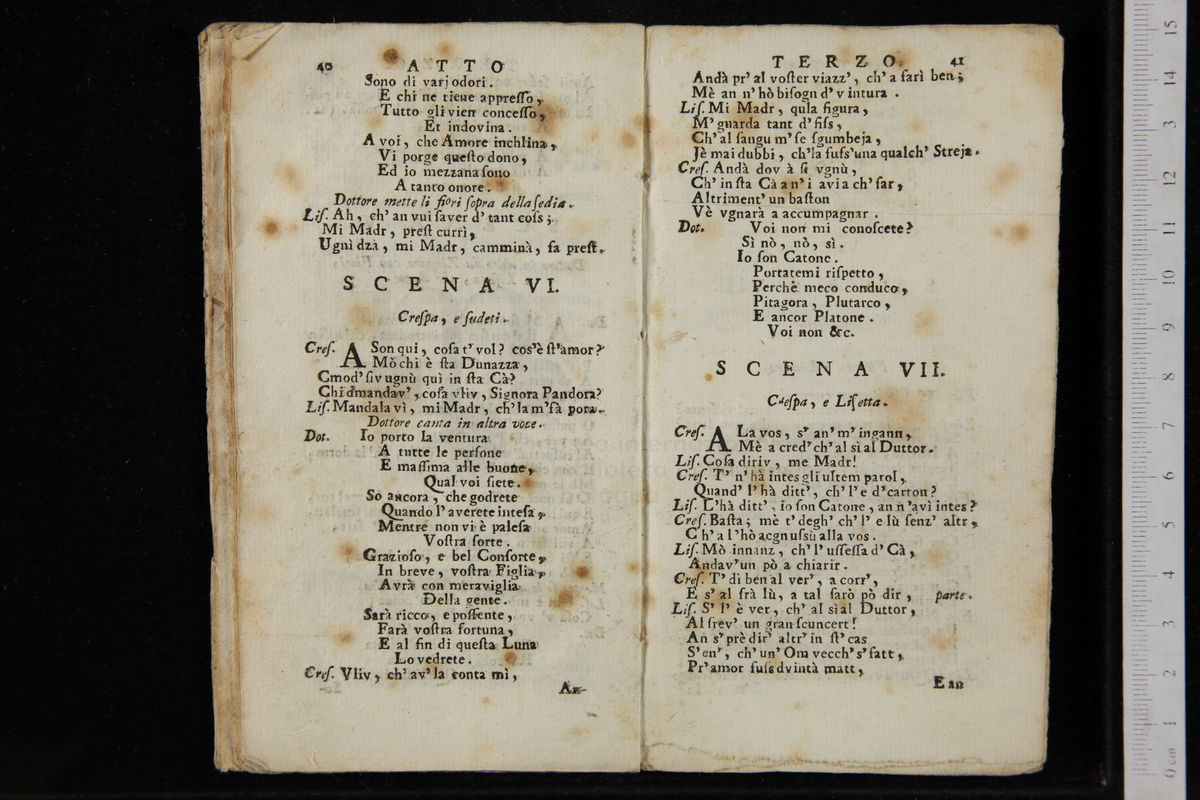 40 ATTO
Sono di varj odori.
E chi ne tiene appresso,
Tutto gli vien concesso,
Et indovina.
A voi, che Amore inchlina,
Vi porge questo dono,
Ed io mezzana sono
A tanto onore.
Dottore mette li fiori sopra della sedia.
Lis. Ah, ch' an vui saver d' tant coss;
Mi Madr, prest currì,
Ugnì dzà, mi Madr, camminà, fa prest.
SCENA VI.
Crespa, e sudeti.
Cres. A Son qui, cosa t' vol? cos'è st'amor?
Mò chi è sta Dunazza,
Cmod' siv ugnù quì in sta Cà?
Chi dmandav', cosa vliv, Signora Pandora?
Lis. Mandala vì, mi Madr, ch'la m'fà pora.
Dottore canta in altra voce.
Dot. Io porto la ventura
A tutte le persone
E massima alle buone,
Qual voi siete.
Sò ancora, che godrete
Quando l'averete intesa,
Mentre non vi è palesa
Vostra sorte.
Grazioso, e bel Consorte,
In breve, vostra Figlia,
Avrà con meraviglia
Della gente.
Sarà ricco, e possente,
Farà vostra fortuna,
E al fin di questa Luna
Lo vedrete.
Cres. Vliv, ch' av' la conta mì,
An-
TERZO 41
Andà pr' al voster viazz', ch' a farì ben;
Mè an n' hò bisogn d' vintura.
Lis. Mi Madr, qula figura,
M' guarda tant d' fiss,
Ch' al sangu m' se sgumbeja,
Jè mai dubbi, ch'la fuss'una qualch' Streja.
Cres. Andà dov à sì vgnù,
Ch' in sta Cà a n' i avi a ch' far,
Altriment' un baston
Vè vgnarà a accumpagnar.
Dot. Voi non mi conoscete?
Sì nò, nò, sì.
Io son Catone.
Portatemi rispetto,
Perchè meco conduco,
Pitagora, Plutarco,
E ancor Platone.
Voi non &c.
SCENA VII.
Crespa, e Lisetta.
Cres. A La vos, s' an' m' ingann,
Mè a cred' ch' al sì al Duttor.
Lis. Cosa diriv, me Madr!
Cres. T' n' hà intes gli ultem parol,
Quand' l' hà ditt', ch' l' e d'carton?
Lis. L'hà ditt', io son Catone, an n'avì intes?
Cres. Basta; mè t' degh' ch' l' e lù senz' altr,
Ch' a l'hò acgnussù alla vos.
Lis. Mò innanz, ch' l' ussessa d' Cà,
Andav'un pò a chiarir.
Cres. T' dì ben al ver', a corr',
E s' al srà lù, a tal farò pò dir, parte.
Lis. S' l' è ver, ch' al sì al Duttor,
Al srev' un gran scuncert!
An s' prè dir' altr' in st' cas
S' en', ch' un' Om vecch' s' fatt,
Pr' amor fuss dvintà matt,
E an